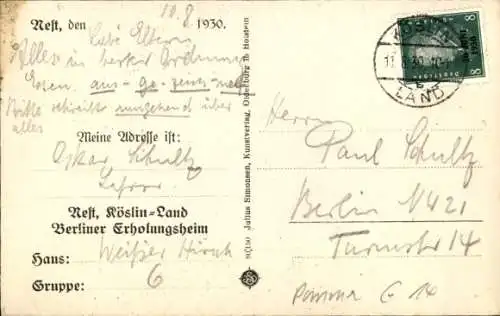 Nest, den 10.8. 1930.
Liebe Eltern
Alles in bester Ordnung
Essen aus-ge-zeich-net
Bitte schreibt umgehend über
alles
Meine Adresse ist:
Oskar Schultz
Nest, Köslin-Land
Berliner Erholungsheim
Haus: Weißer Hirsch
Gruppe: 6
Julius Simonsen, Kunstverlag, Oldenburg in Holstein
8
8
LAND
Herrn
Paul Schultz
Berlin NW 21
Turmstr 14